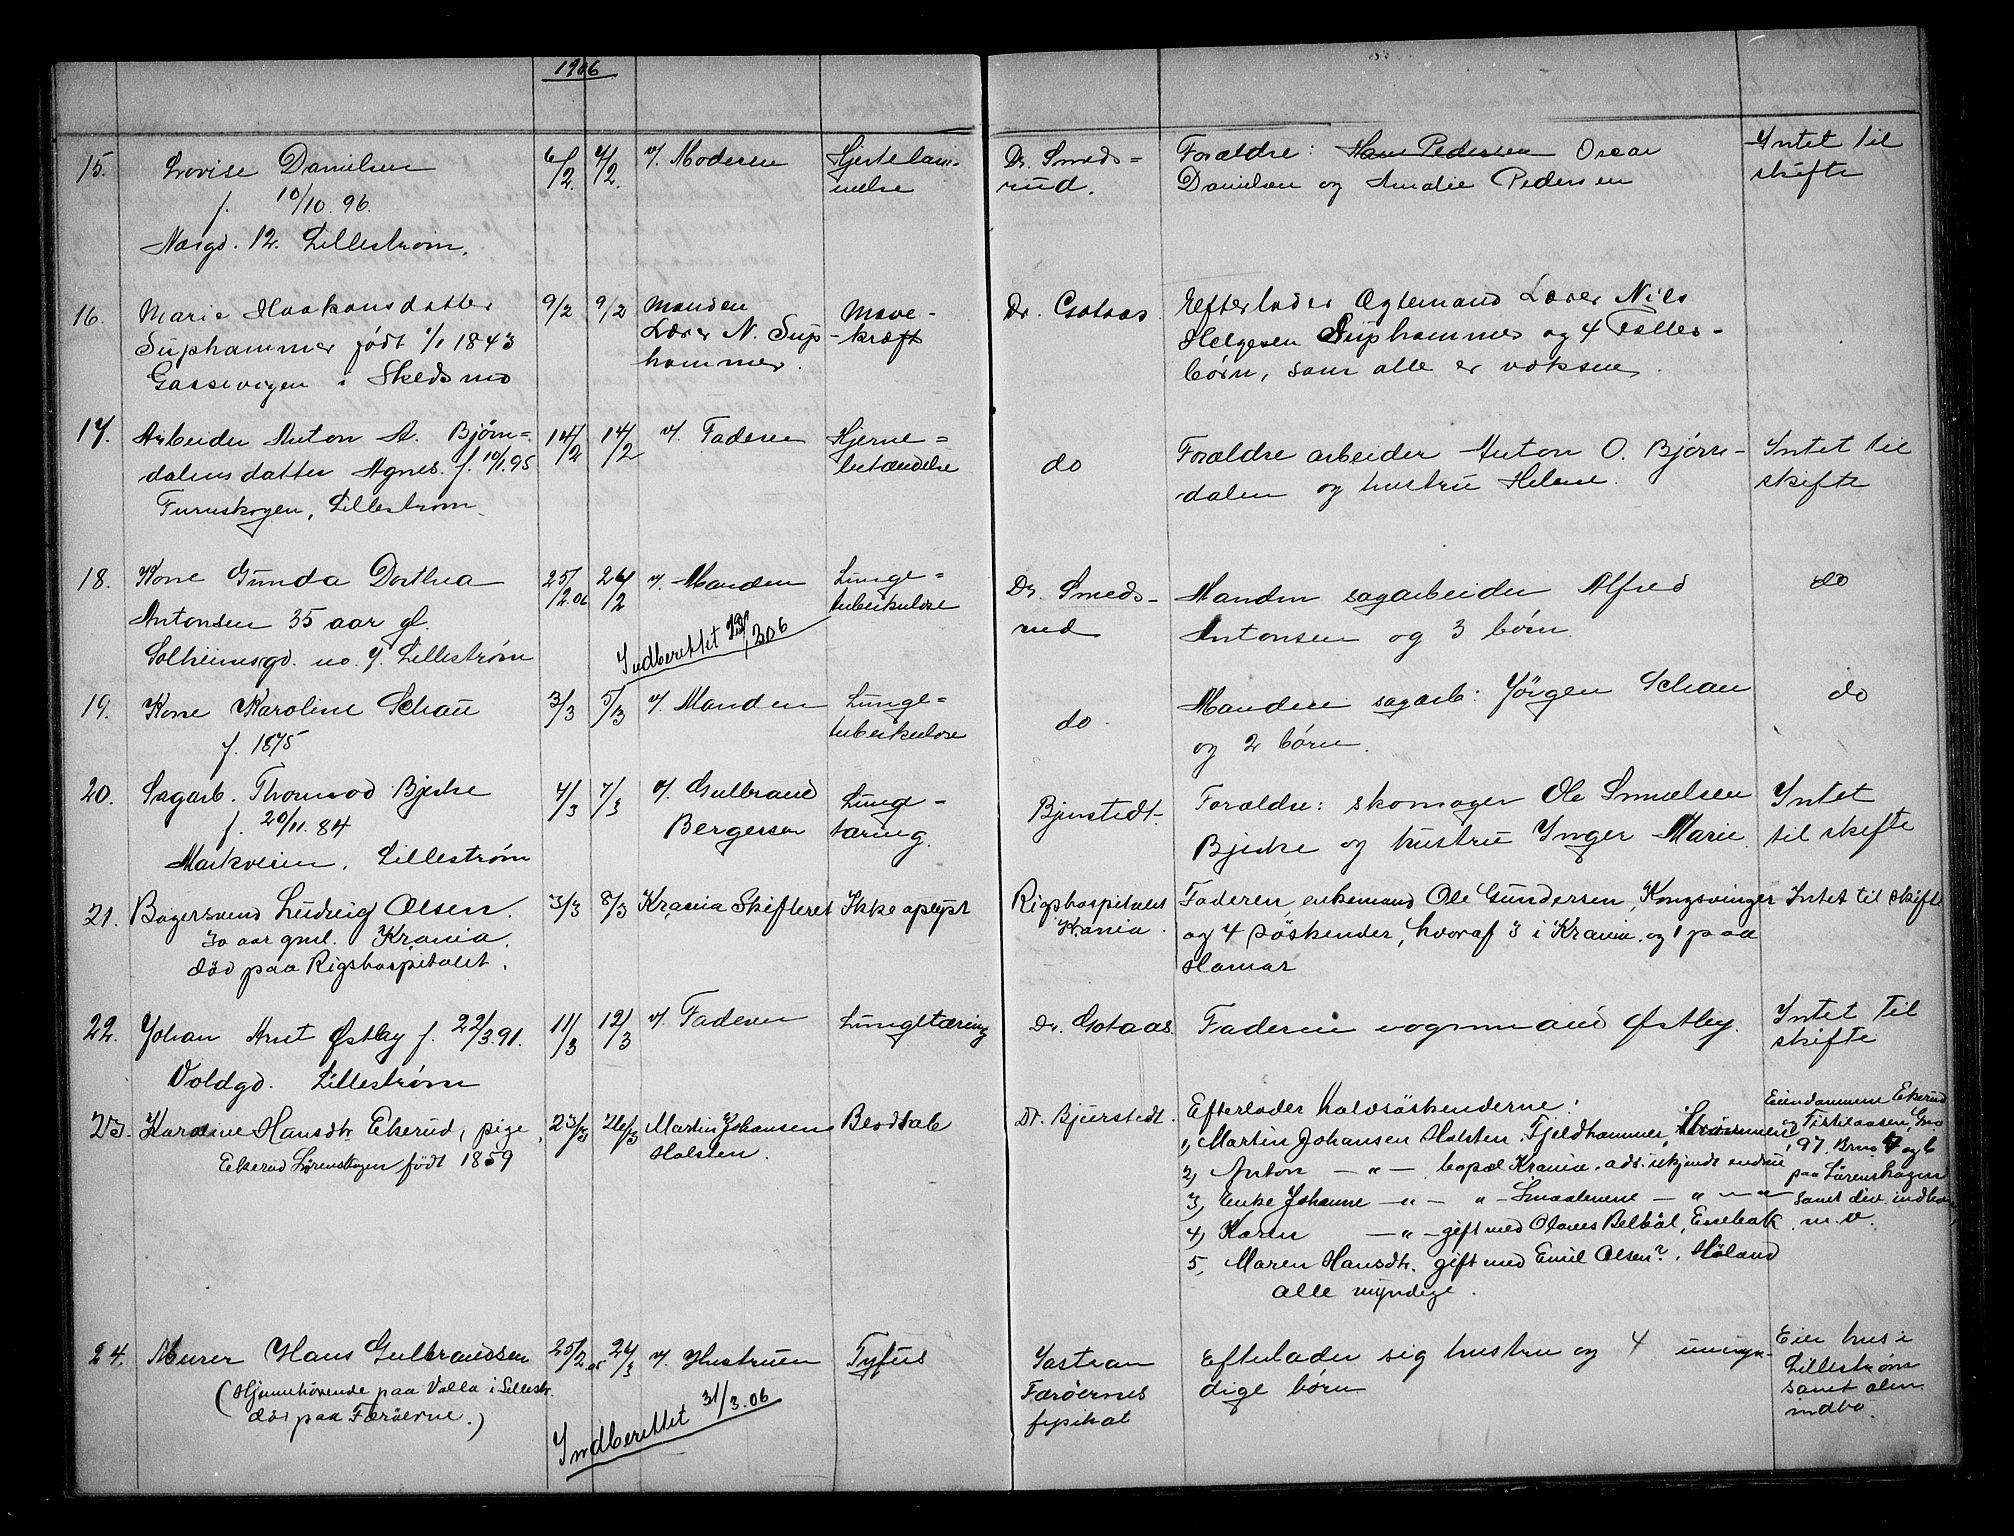 1906
15. Lovise Danielsen 6/2 4/2. v/. Moderen Hjertelam- Dr. Smeds= Forældre: Hans Pedersen Oscar Intet til
f. 10/10.96. melse rud. Danielsen og Amalie Pedersen skifte
Næsgd. 12. Lillestrøm.
16. Marie Haakonsdatter 9/2 9/2 Manden Mave- Dr. Gotaas Efterlader Ægtemand Lærer Nils
Suphammer født 1/1 1843 Lærer N. Sup- kræft Helgesen Suphammer og 4 Fælles-
Gaasevigen i Skedsmo hammer. børn, som alle er voksne.
17. Arbeider Anton A. Bjørn= 14/2 14/2 v/. Faderen Hjerne= do Forældre arbeider Anton O. Bjørn- Intet til
dalens datter Agnes. f. 10/1.95 betændelse dalen og hustru Helene. skifte
Furuskogen, Lillestrøm.
18. Kone Gunda Dorthea 25/2.06 26/2 v/. Manden Lunge= Dr. Smeds- Manden sagarbeider Alfred do
Antonsen 35 aar gl. tuberkulose rud Antonsen og 3 børn.
Solheimsgd. no. 7. Lillestrøm Indberettet 13/3 06
19. Kone Karoline Schau 3/3 5/3 v/. Manden Lunge= do Manden sagarb: Jörgen Schau do
f. 1875 tuberkulose og 2 børn.
20. Sagarb. Thormod Bjerke 4/3 7/3 v/. Gulbrand Lunge- Bjerstedt. Forældre: skomager Ole Smuelsen Intet
f. 20/11.84 Bergersen tæring. Bjerke og hustru Inger Marie. til skifte
Markveien, Lillestrøm
21. Bagersvend Ludvig Olsen. 3/3 8/3 Krania Skifteret Ikke oplyst Rigshospitalet Faderen, enkemand Ole Gundersen, Kongsvinger Intet til skifte
30 aar gml. Krania. Krania. og 4 söskender, hvoraf 3 i Krania. og 1 paa
död paa Rigshospitalet. Hamar
22. Johan Arnt Østby f. 22/3.91. 11/3 12/3 v/. Faderen Lungetæring Dr. Gotaas. Faderen vognmand Østby. Intet til
Voldgd. Lillestrøm skifte
23. Karoline Hansdtr Ekerud, pige, 23/3 26/3 Martin Johansen Blodtab Dr. Bjerstedt. Efterlader halvsöskenderne: Eiendommene Ekerud
Ekerud Lørenskogen født 1859 Holsten. 1, Martin Johansen Holsten, Fjeldhammer, Strömmen og Tistilaasen, Gno
2, Anton — " — bopæl Krania. ads. ukjendt endnu 97. Brno 4 og 6
3, Enke Johanne — " — " – Smaalenene — " — " paa Lörenskogen
4, Karen — " — gift med Olaves Belböl, Enebak samt div. indbo
5, Maren Hansdtr. gift med Emil Olsen?, Höland m. v.
alle myndige.
24. Murer Hans Gulbrandsen 25/2 05 24/3 v/. Hustruen Tyfus Efterlader sig hustru og 4 umyn- Eier hus i
(Hjemmehörende paa Volla i Lillestr. Færöernes dige börn Lillestrøm
död paa Færöerne.) fysikat samt alm.
Indberettet 31/3.06 indbo.